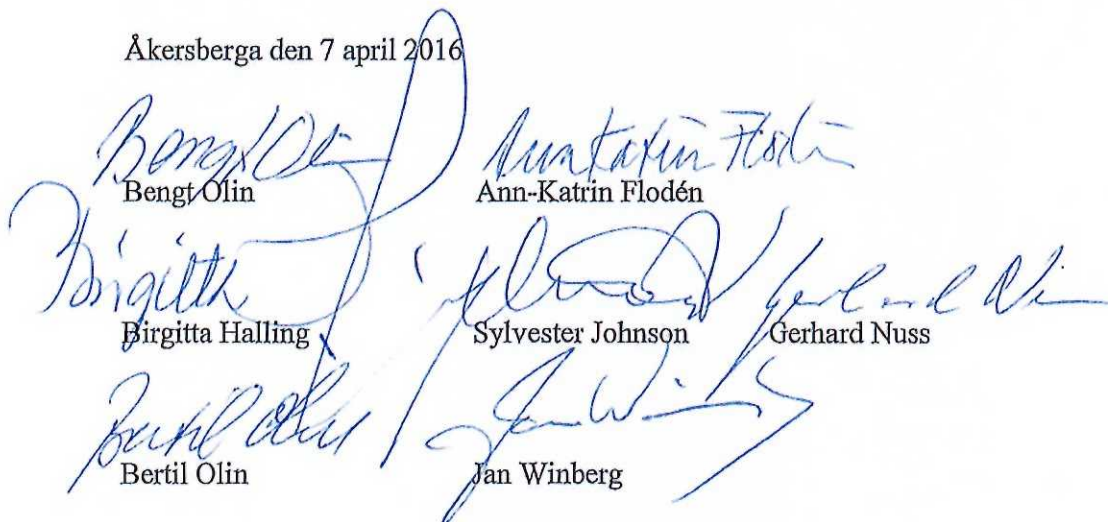 Åkersberga den 7 april 2016
Bengt Olin Ann Katrin Flodén
Bengt Olin Ann-Katrin Flodén
Birgitta Gerhard
Birgitta Halling Sylvester Johnson Gerhard Nuss
Bertil Olin Jan Winberg
Bertil Olin Jan Winberg